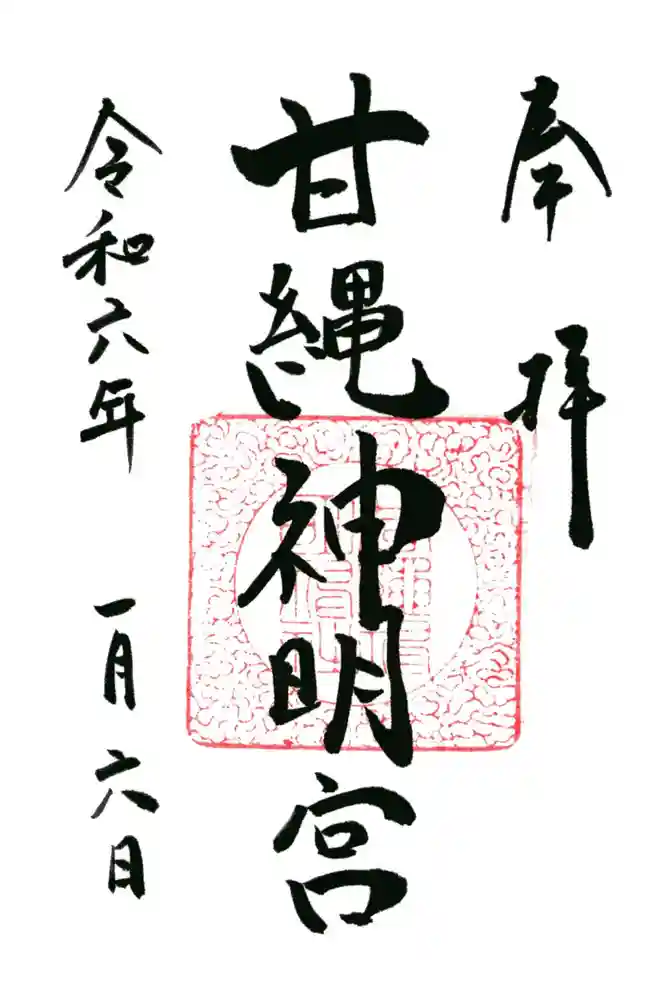 奉拝
甘縄神明宮
令和六年一月六日